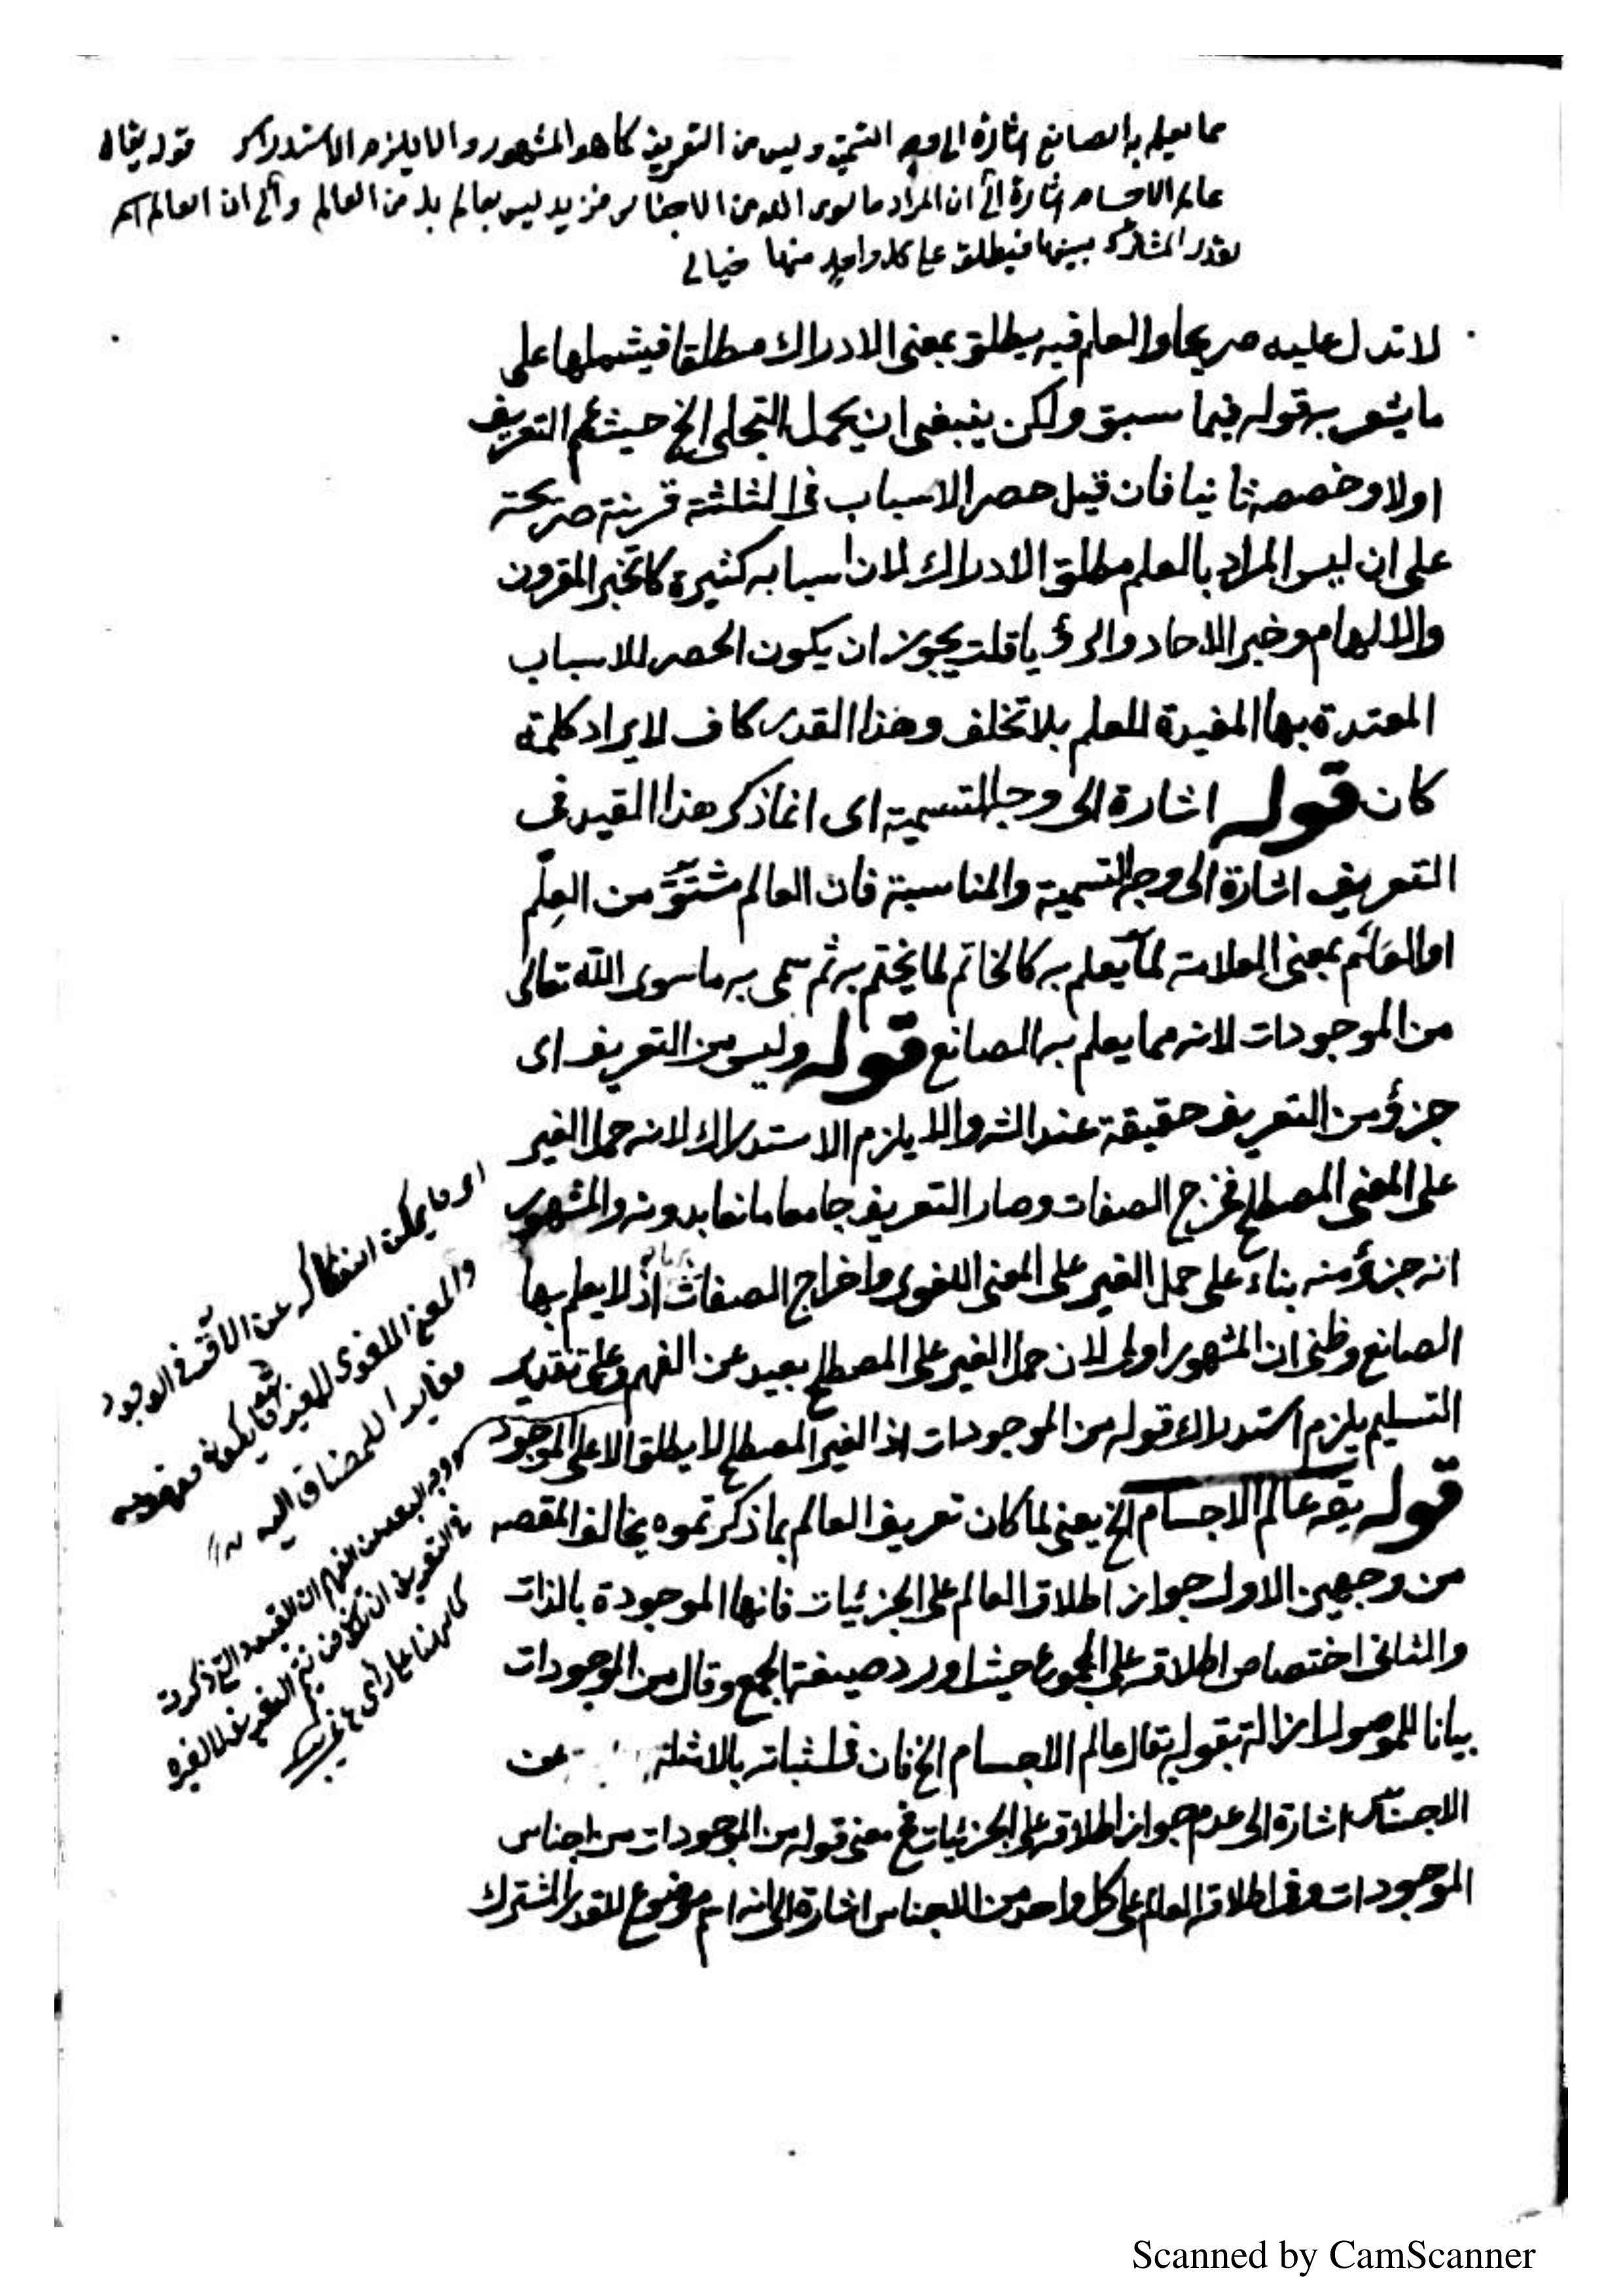 مما يعلم به الصانع اشارة الى وجه التسمية وليس من التعريف كما هو المشهور والا يلزم الاستدراك قوله يقال
عالم الاجسام اشارة الى ان المراد ما سوى الله من الاجناس فزيد ليس بعالم بل من العالم والى ان العالم اسم
لقدر المشترك بينها فيطلق على كل واحد منها خيالى
لا تدل عليه صريحا والعلم فيه يطلق بمعنى الادراك مطلقا فيشملها على
ما يشعر به قوله فيما سبق ولكن ينبغى ان يحمل التجلى الخ حيث عمم التعريف
اولا وخصصه ثانيا فان قيل حصر الاسباب فى الثلثة قرينة صريحة
على ان ليس المراد بالعلم مطلق الادراك لان اسبابه كثيرة كالخبر المقرون
والالهام وخبر الاحاد والرؤيا قلت يجوز ان يكون الحصر للاسباب
المعتدة بها المفيدة للعلم بلا تخلف وهذا القدر كاف لايراد كلمة
كان قوله اشارة الى وجه التسمية اى انما ذكر هذا القيد فى
التعريف اشارة الى وجه التسمية والمناسبة فان العالم مشتق من العلم
او العلم بمعنى العلامة لما يعلم به كالخاتم لما يختم به ثم سمى به ما سوى الله تعالى
من الموجودات لانه مما يعلم به الصانع قوله وليس من التعريف اى
جزؤ من التعريف حقيقة عند الشر والا يلزم الاستدراك لانه حمل الغير
على المعنى المصطلح فخرج الصفات وصار التعريف جامعا مانعا بدونه والمشهور
انه جزؤ منه بناء على حمل الغير على المعنى اللغوى واخراج الصفات اذ لا يعلم بها
الصانع وظنى ان المشهور اولى لان حمل الغير على المصطلح بعيد عن الفهم وعلى تقدير
التسليم يلزم استدراك قوله من الموجودات اذ الغير المصطلح لا يطلق الا على الموجود
قوله يقه عالم الاجسام الخ يعنى لما كان تعريف العالم بما ذكر تموه يخالف المقصه
من وجهين الاول جواز اطلاق العالم على الجزئيات فانها الموجودة بالذات
والثانى اختصاص اطلاقه على المجموع حيث اورد صيغة الجمع وقال من الموجودات
بيانا للموصول ازاله بقوله يقال عالم الاجسام الخ فان فى اثباته بالامثلة عن
الاجناس اشارة الى عدم جواز اطلاقه على الجزئيات فح معنى قوله من الموجودات من اجناس
الموجودات وفى اطلاق العالم على كل واحد من الاجناس اشارة الى انه اسم موضوع للقدر المشترك
اى ما يمكن انفكاكه عن الآخر فى الوجود
والمعنى اللغوى للغير ما يكون مفهومه
مغايرا للمضاف اليه
ووجه البعد عن الفهم ان القيود التى ذكرت
فى التعريف
Scanned by CamScanner